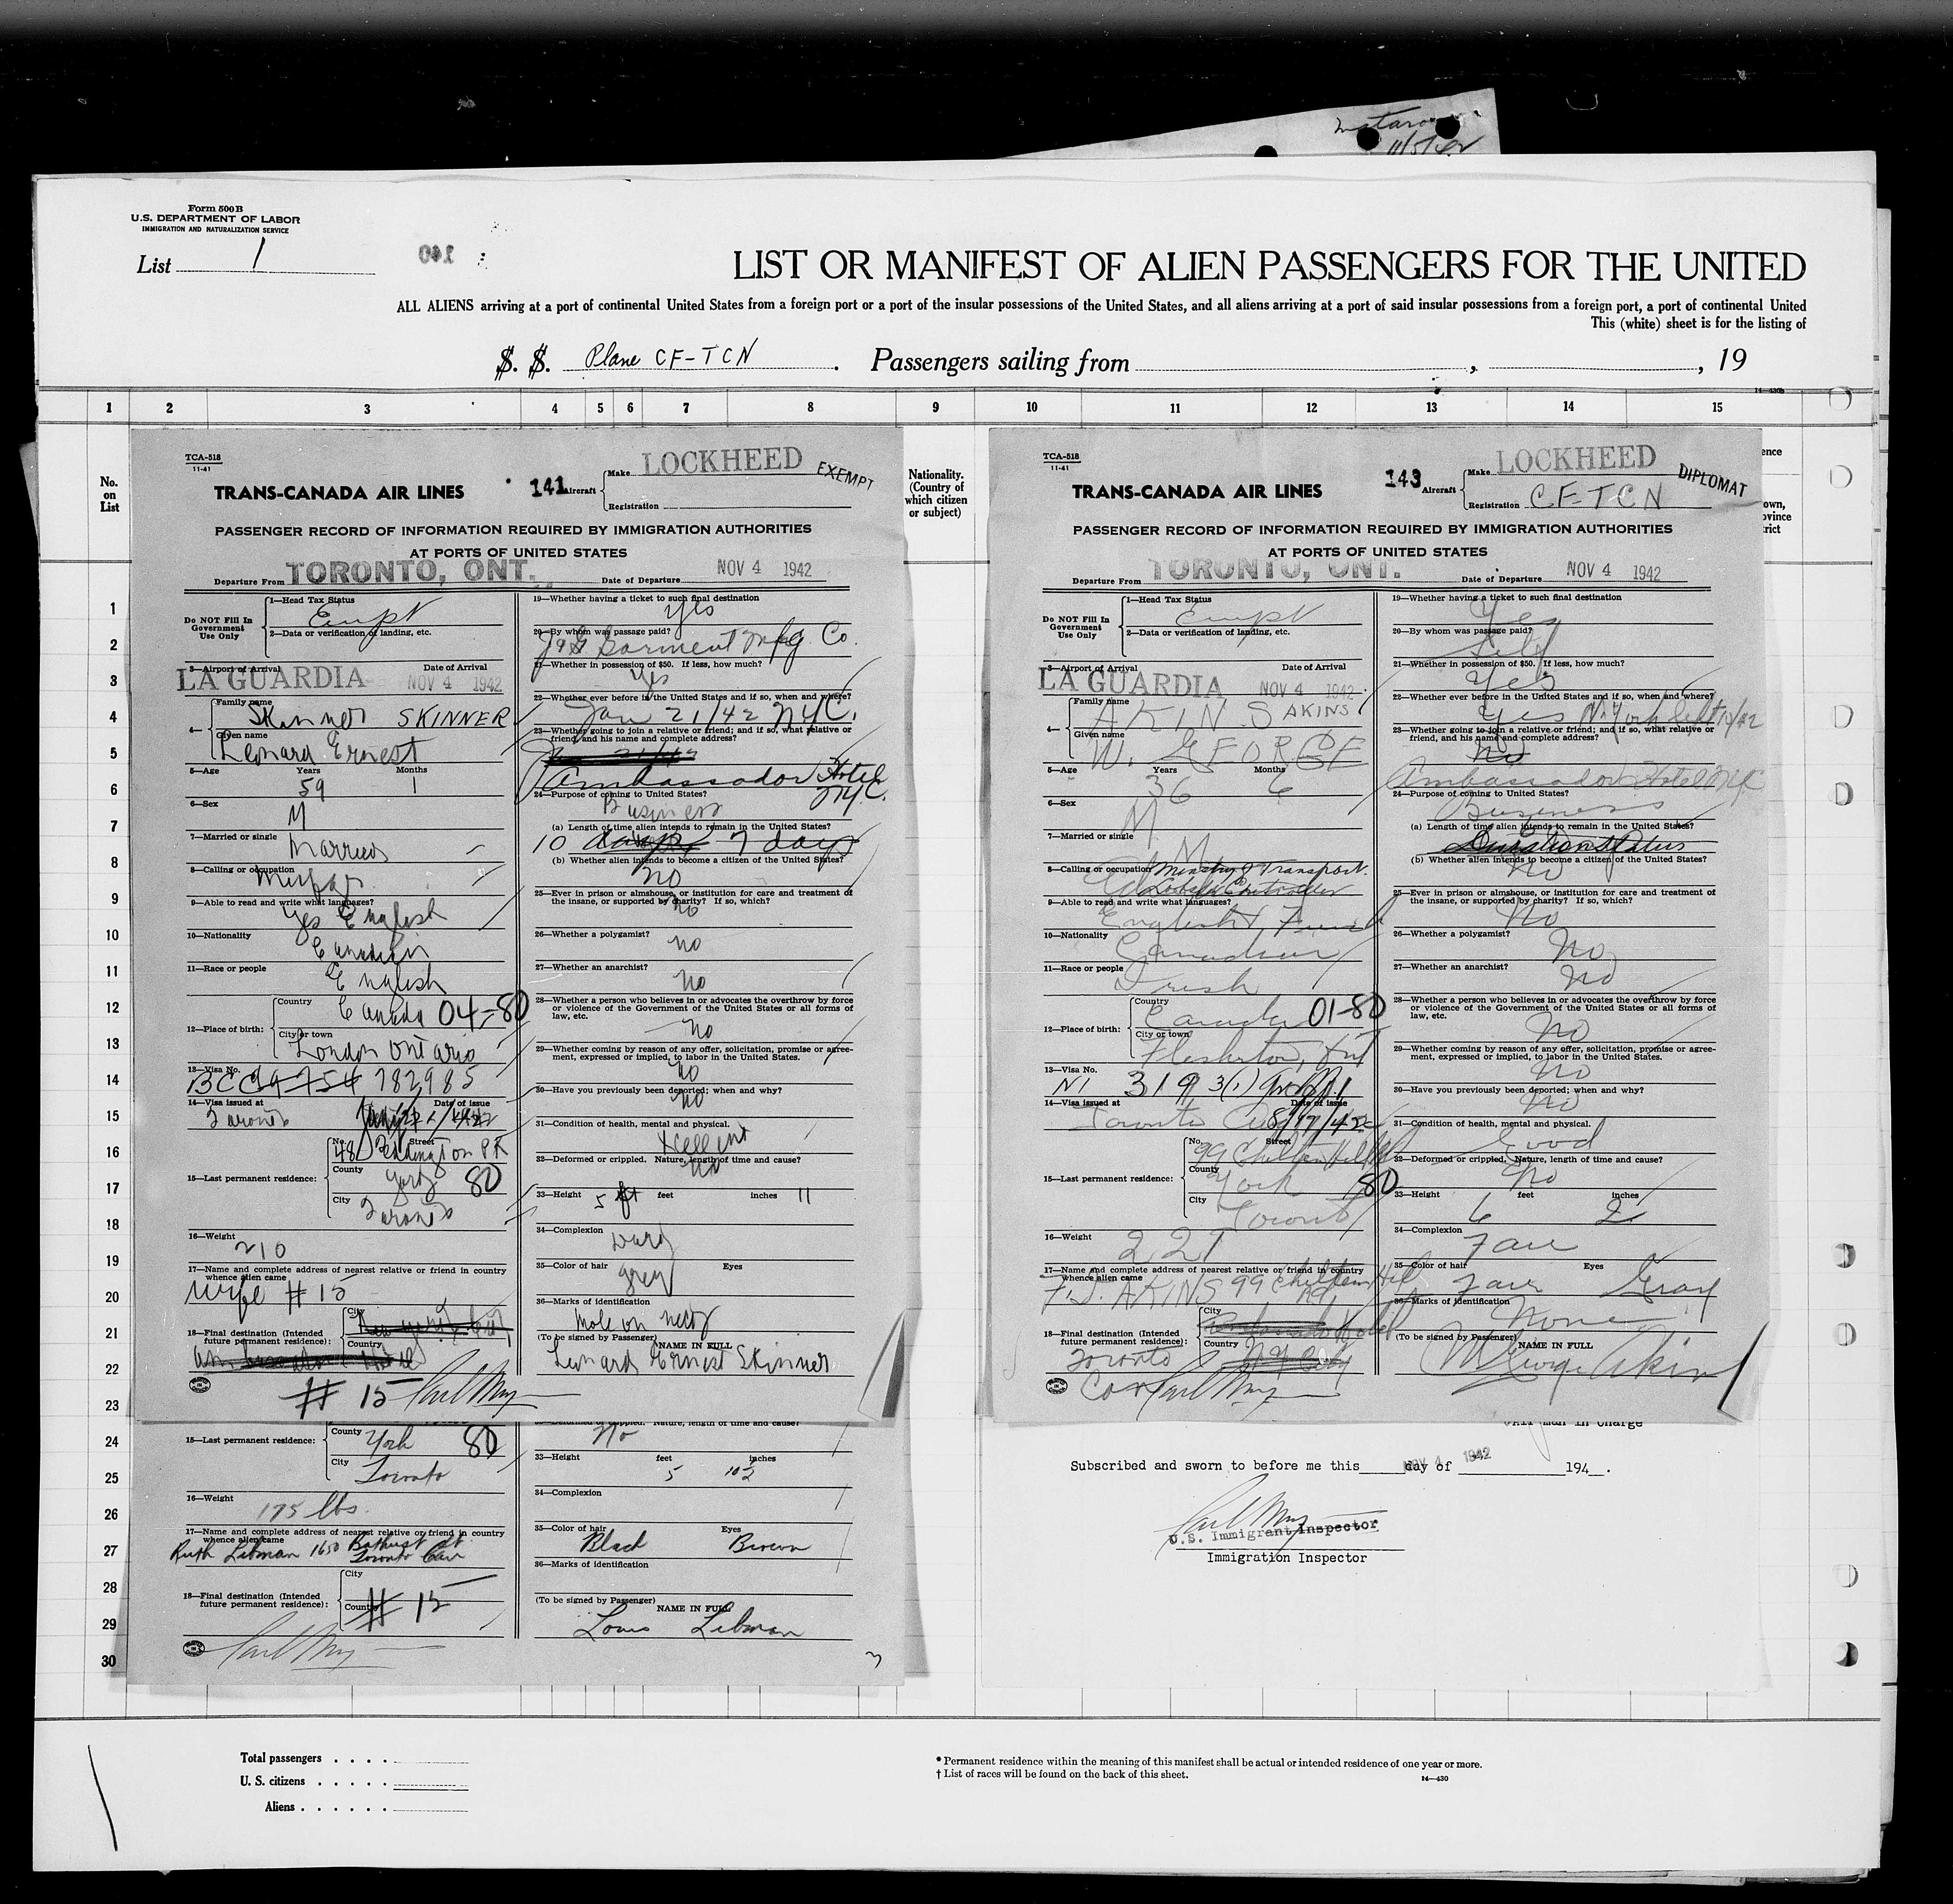 Form 500B
U.S. DEPARTMENT OF LABOR
IMMIGRATION AND NATURALIZATION SERVICE
List 1
140
LIST OR MANIFEST OF ALIEN PASSENGERS FOR THE UNITED
ALL ALIENS arriving at a port of continental United States from a foreign port or a port of the insular possessions of the United States, and all aliens arriving at a port of said insular possessions from a foreign port, a port of continental United
This (white) sheet is for the listing of
S. S. Plane CF-TCN . Passengers sailing from , , 19
1 2 3 4 5 6 7 8 9 10 11 12 13 14 15
No. on List
Nationality. (Country of which citizen or subject)
1
2
3
4
5
6
7
8
9
10
11
12
13
14
15
16
17
18
19
20
21
22
23
24
25
26
27
28
29
30
TCA-518
11-41
TRANS-CANADA AIR LINES
141 Aircraft
Make LOCKHEED
EXEMPT
Registration
PASSENGER RECORD OF INFORMATION REQUIRED BY IMMIGRATION AUTHORITIES
AT PORTS OF UNITED STATES
Departure From TORONTO, ONT. Date of Departure NOV 4 1942
Do NOT Fill In Government Use Only
1—Head Tax Status
2—Data or verification of landing, etc.
3—Airport of Arrival Date of Arrival
LA GUARDIA NOV 4 1942
4— Family name Skinner SKINNER
Given name Leonard Ernest
5—Age Years 59 Months 1
6—Sex M
7—Married or single Married
8—Calling or occupation
9—Able to read and write what languages?
Yes English
10—Nationality Canadian
11—Race or people English
12—Place of birth: Country Canada 04-80
City or town London Ontario
13—Visa No.
782985
14—Visa issued at Date of issue
Toronto
15—Last permanent residence: No. Street
48
County York 80
City Toronto
16—Weight 210
17—Name and complete address of nearest relative or friend in country whence alien came
Wife # 15
18—Final destination (Intended future permanent residence): City
Country
# 15
19—Whether having a ticket to such final destination
Yes
20—By whom was passage paid?
Garment Mfg. Co.
21—Whether in possession of $50. If less, how much?
Yes
22—Whether ever before in the United States and if so, when and where?
Jan 21/42 N.Y.C.
23—Whether going to join a relative or friend; and if so, what relative or friend, and his name and complete address?
Ambassador Hotel N.Y.C.
24—Purpose of coming to United States?
Business
(a) Length of time alien intends to remain in the United States?
10 days 7 days
(b) Whether alien intends to become a citizen of the United States?
no
25—Ever in prison or almshouse, or institution for care and treatment of the insane, or supported by charity? If so, which?
no
26—Whether a polygamist? no
27—Whether an anarchist? no
28—Whether a person who believes in or advocates the overthrow by force or violence of the Government of the United States or all forms of law, etc.
no
29—Whether coming by reason of any offer, solicitation, promise or agreement, expressed or implied, to labor in the United States.
no
30—Have you previously been deported; when and why?
no
31—Condition of health, mental and physical.
Xcellent
32—Deformed or crippled. Nature, length of time and cause?
no
33—Height 5 ft feet inches 11
34—Complexion
35—Color of hair grey Eyes
36—Marks of identification
Mole on neck
(To be signed by Passenger) NAME IN FULL
Leonard Ernest Skinner
County York 80
15—Last permanent residence:
City Toronto
16—Weight 175 lbs.
17—Name and complete address of nearest relative or friend in country whence alien came
Ruth Libman 1650 Bathurst St. Toronto Can
18—Final destination (Intended future permanent residence): City
Country # 15
No
33—Height feet 5 inches 10½
34—Complexion
35—Color of hair Black Eyes Brown
36—Marks of identification
(To be signed by Passenger) NAME IN FULL
Louis Libman
TCA-518
11-41
TRANS-CANADA AIR LINES
143 Aircraft
Make LOCKHEED
DIPLOMAT
Registration CF-TCN
PASSENGER RECORD OF INFORMATION REQUIRED BY IMMIGRATION AUTHORITIES
AT PORTS OF UNITED STATES
Departure From TORONTO, ONT. Date of Departure NOV 4 1942
Do NOT Fill In Government Use Only
1—Head Tax Status
2—Data or verification of landing, etc.
3—Airport of Arrival Date of Arrival
LA GUARDIA NOV 4 1942
4— Family name AKINS AKINS
Given name W. GEORGE
5—Age Years 36 Months 6
6—Sex M
7—Married or single M
8—Calling or occupation Ministry of Transport.
Controller
9—Able to read and write what languages?
English & French
10—Nationality Canadian
11—Race or people Irish
12—Place of birth: Country Canada 01-80
City or town Flesherton, Ont
13—Visa No.
14—Visa issued at Date of issue
Toronto
15—Last permanent residence: No. Street
99 Chiltern Hill Rd
County York 80
City Toronto
16—Weight 227
17—Name and complete address of nearest relative or friend in country whence alien came
AKINS 99 Chiltern Hill Rd.
18—Final destination (Intended future permanent residence): City
Country
Toronto
Can
19—Whether having a ticket to such final destination
Yes
20—By whom was passage paid?
Self
21—Whether in possession of $50. If less, how much?
Yes
22—Whether ever before in the United States and if so, when and where?
Yes N. York
23—Whether going to join a relative or friend; and if so, what relative or friend, and his name and complete address?
No
Ambassador Hotel NYC
24—Purpose of coming to United States?
Business
(a) Length of time alien intends to remain in the United States?
Duration Status
(b) Whether alien intends to become a citizen of the United States?
No
25—Ever in prison or almshouse, or institution for care and treatment of the insane, or supported by charity? If so, which?
No
26—Whether a polygamist? No
27—Whether an anarchist? No
28—Whether a person who believes in or advocates the overthrow by force or violence of the Government of the United States or all forms of law, etc.
No
29—Whether coming by reason of any offer, solicitation, promise or agreement, expressed or implied, to labor in the United States.
No
30—Have you previously been deported; when and why?
No
31—Condition of health, mental and physical.
Good
32—Deformed or crippled. Nature, length of time and cause?
No
33—Height 6 feet 2 inches
34—Complexion Fair
35—Color of hair Fair Eyes Gray
36—Marks of identification
None
(To be signed by Passenger) NAME IN FULL
W George Akins
Subscribed and sworn to before me this NOV 4 day of 1942 194 .
U.S. Immigrant Inspector
Immigration Inspector
Total passengers . . . .
U. S. citizens . . . . .
Aliens . . . . . .
* Permanent residence within the meaning of this manifest shall be actual or intended residence of one year or more.
† List of races will be found on the back of this sheet.
14—430